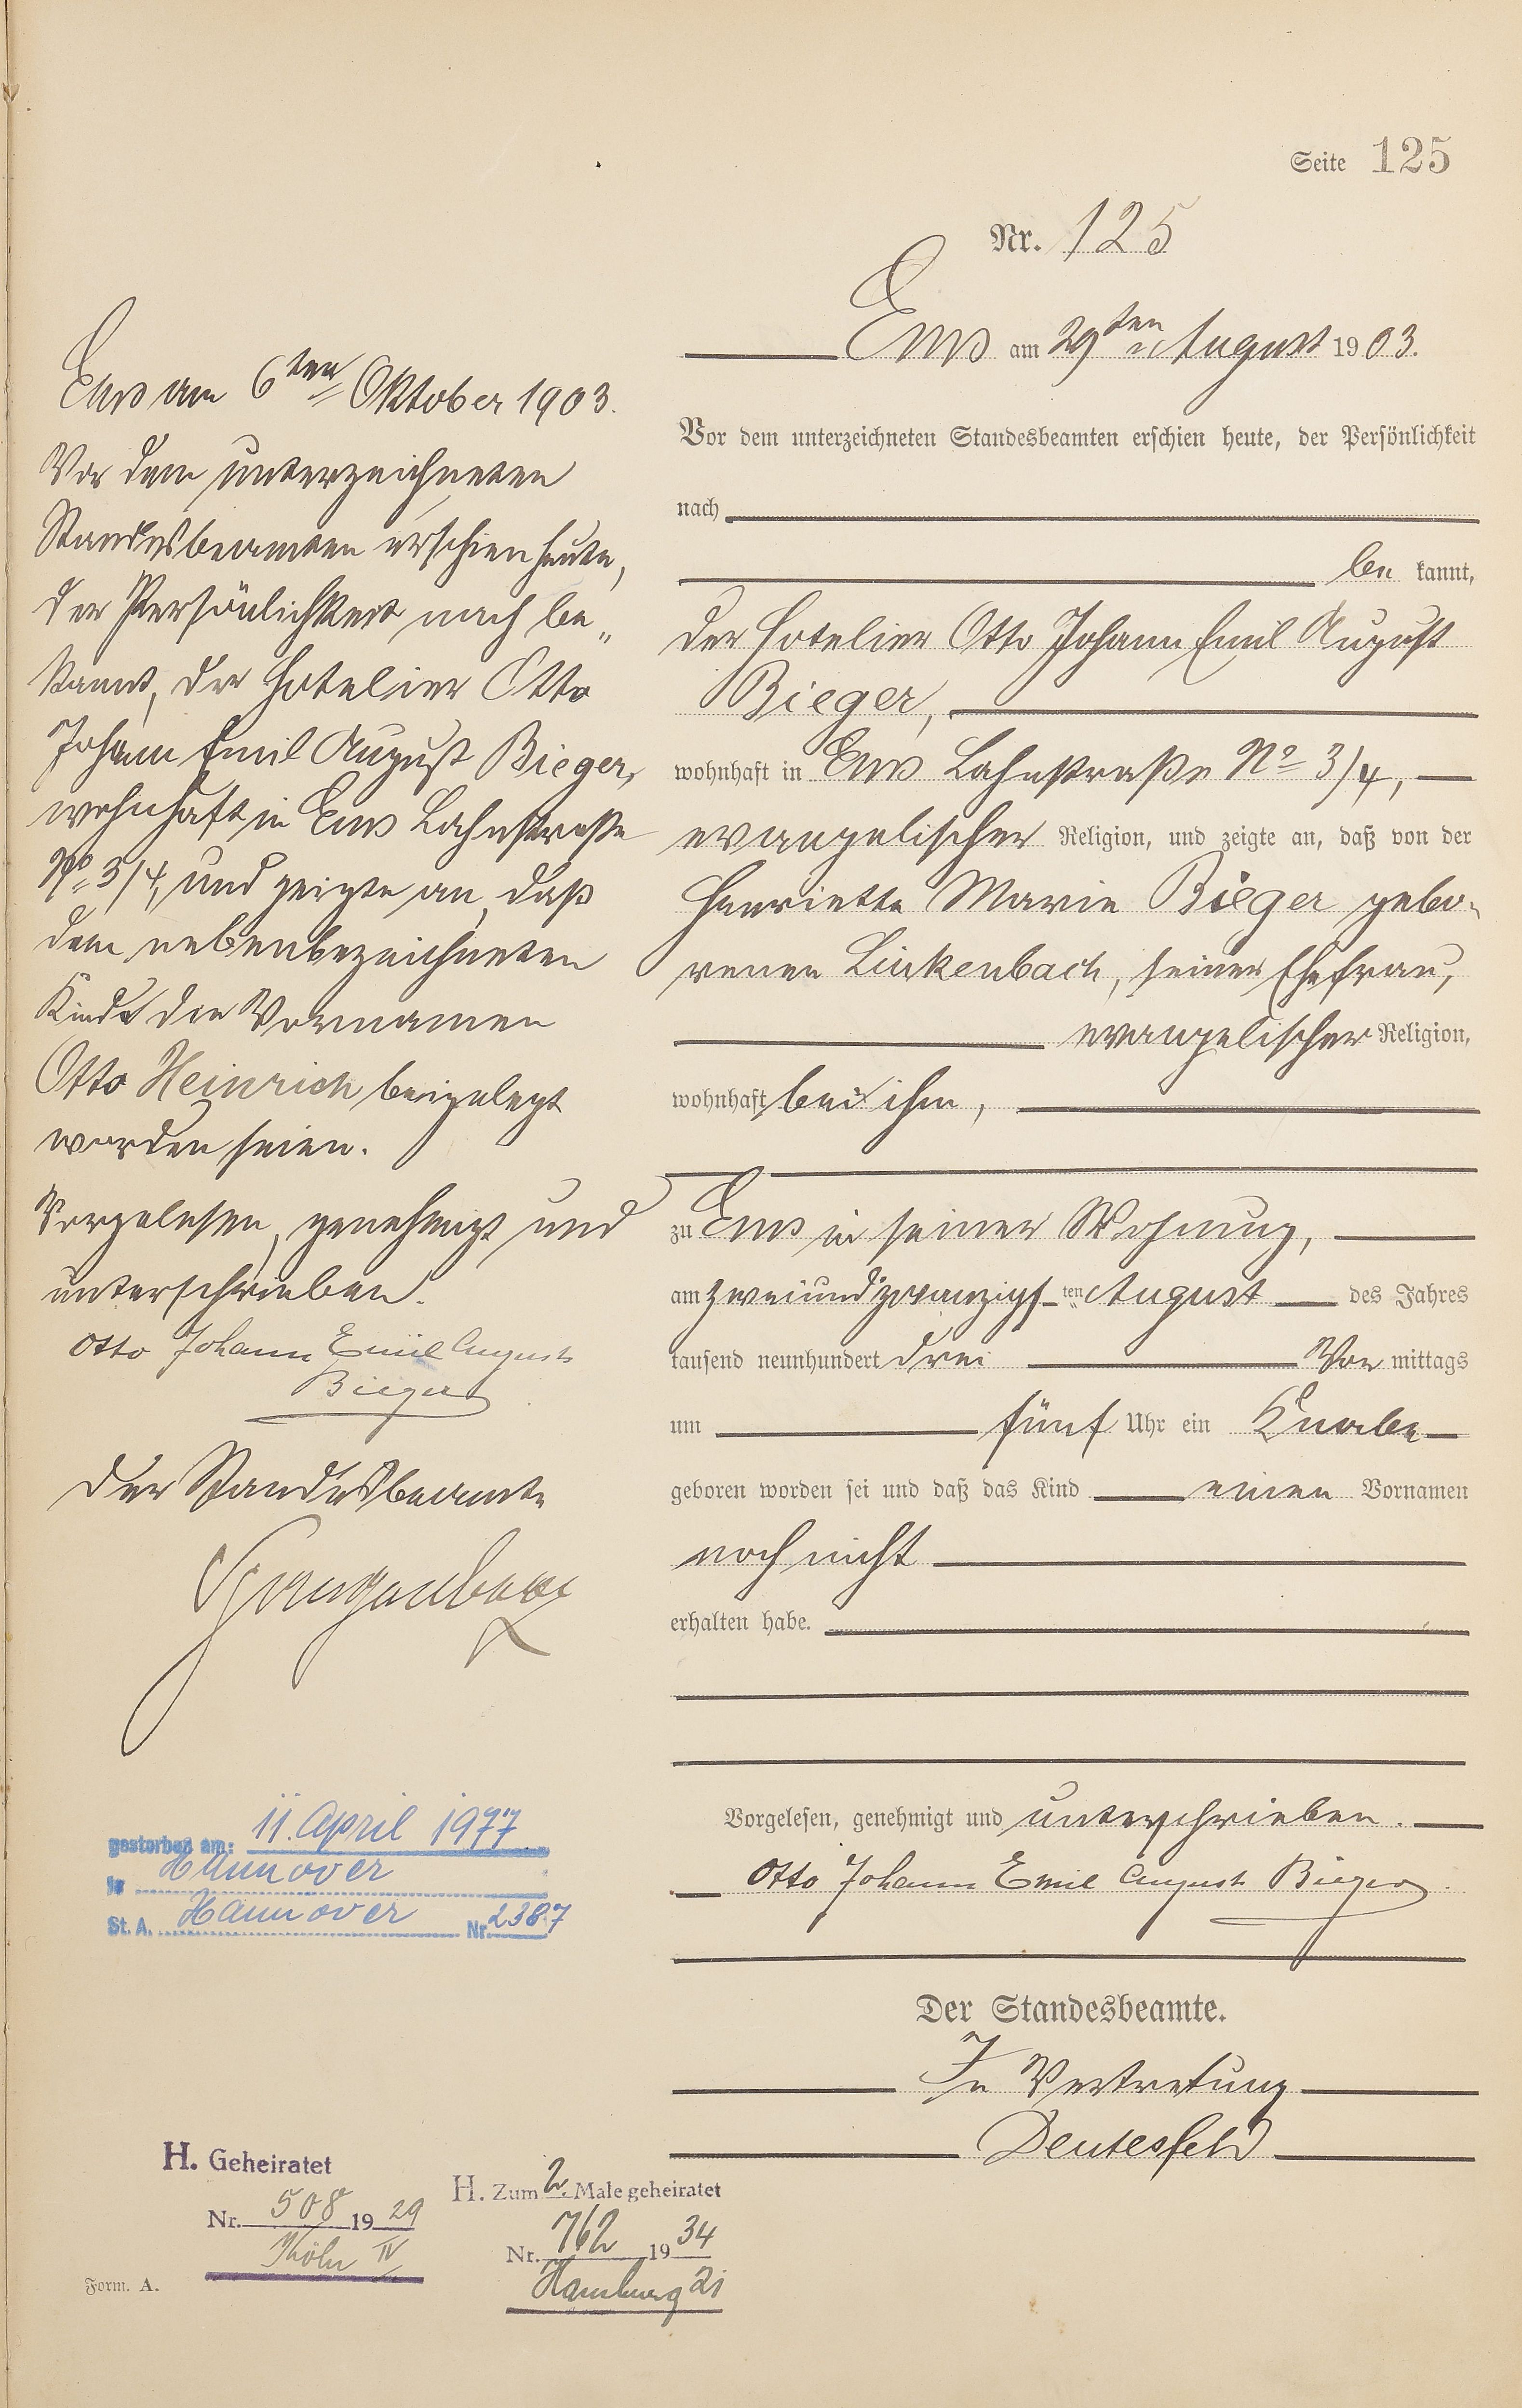 Seite 125
Nr. 125
Ems am 29ten August 1903.
Vor dem unterzeichneten Standesbeamten erschien heute, der Persönlichkeit
nach
be kannt,
der Hotelier Otto Johann Emil August
Bieger,
wohnhaft in Ems Lahnstraße No 3/4,
evangelischer Religion, und zeigte an, daß von der
Henriette Marie Bieger gebo-
renen Linkenbach, seiner Ehefrau,
evangelischer Religion,
wohnhaft bei ihm,
zu Ems in seiner Wohnung,
am zweiundzwanzigsten August des Jahres
tausend neunhundert drei Vor mittags
um fünf Uhr ein Knabe
geboren worden sei und daß das Kind einen Vornamen
noch nicht
erhalten habe.
Vorgelesen, genehmigt und unterschrieben.
Otto Johann Emil August Bieger
Der Standesbeamte.
In Vertretung
Deutesfeld
Ems am 6ten Oktober 1903.
Vor dem unterzeichneten
Standesbeamten erschien heute,
der Persönlichkeit nach be„
kannt, der Hotelier Otto
Johann Emil August Bieger,
wohnhaft in Ems Lahnstraße
No 3/4, und zeigte an, daß
dem nebenbezeichneten
Kinde die Vornamen
Otto Heinrich beigelegt
worden seien.
Vorgelesen, genehmigt und
unterschrieben.
Otto Johann Emil August
Bieger
Der Standesbeamte
gestorben am: 11. April 1977
in Hannover
St. A. Hannover Nr. 2387
H. Geheiratet
Nr. 508 1929
Köln IV
H. Zum 2. Male geheiratet
Nr. 762 1934
Hamburg 21
Form. A.